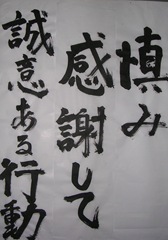 慎み
感謝して
誠意ある行動